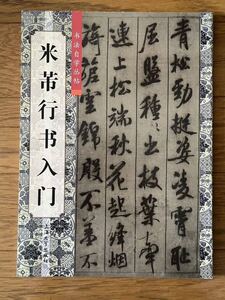 书法自学丛帖
米芾行书入门
青松勁挺姿凌霄耻
屈盤種々出枝葉牽
連上松端秋花起絳烟
旖旎雲錦殷不羞不